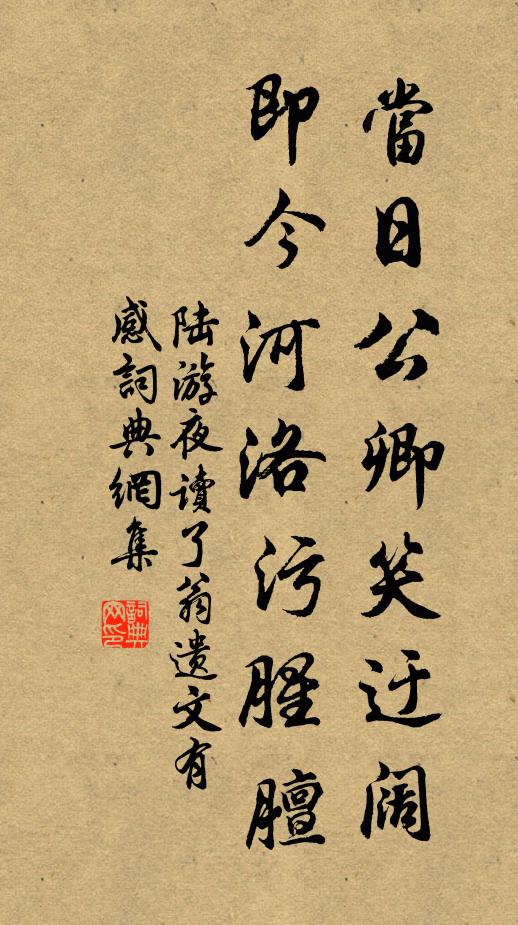 當日公卿笑迂阔
即今河洛污腥膻
陆游夜讀了翁遗文有
感詞典網集
詞典
网印